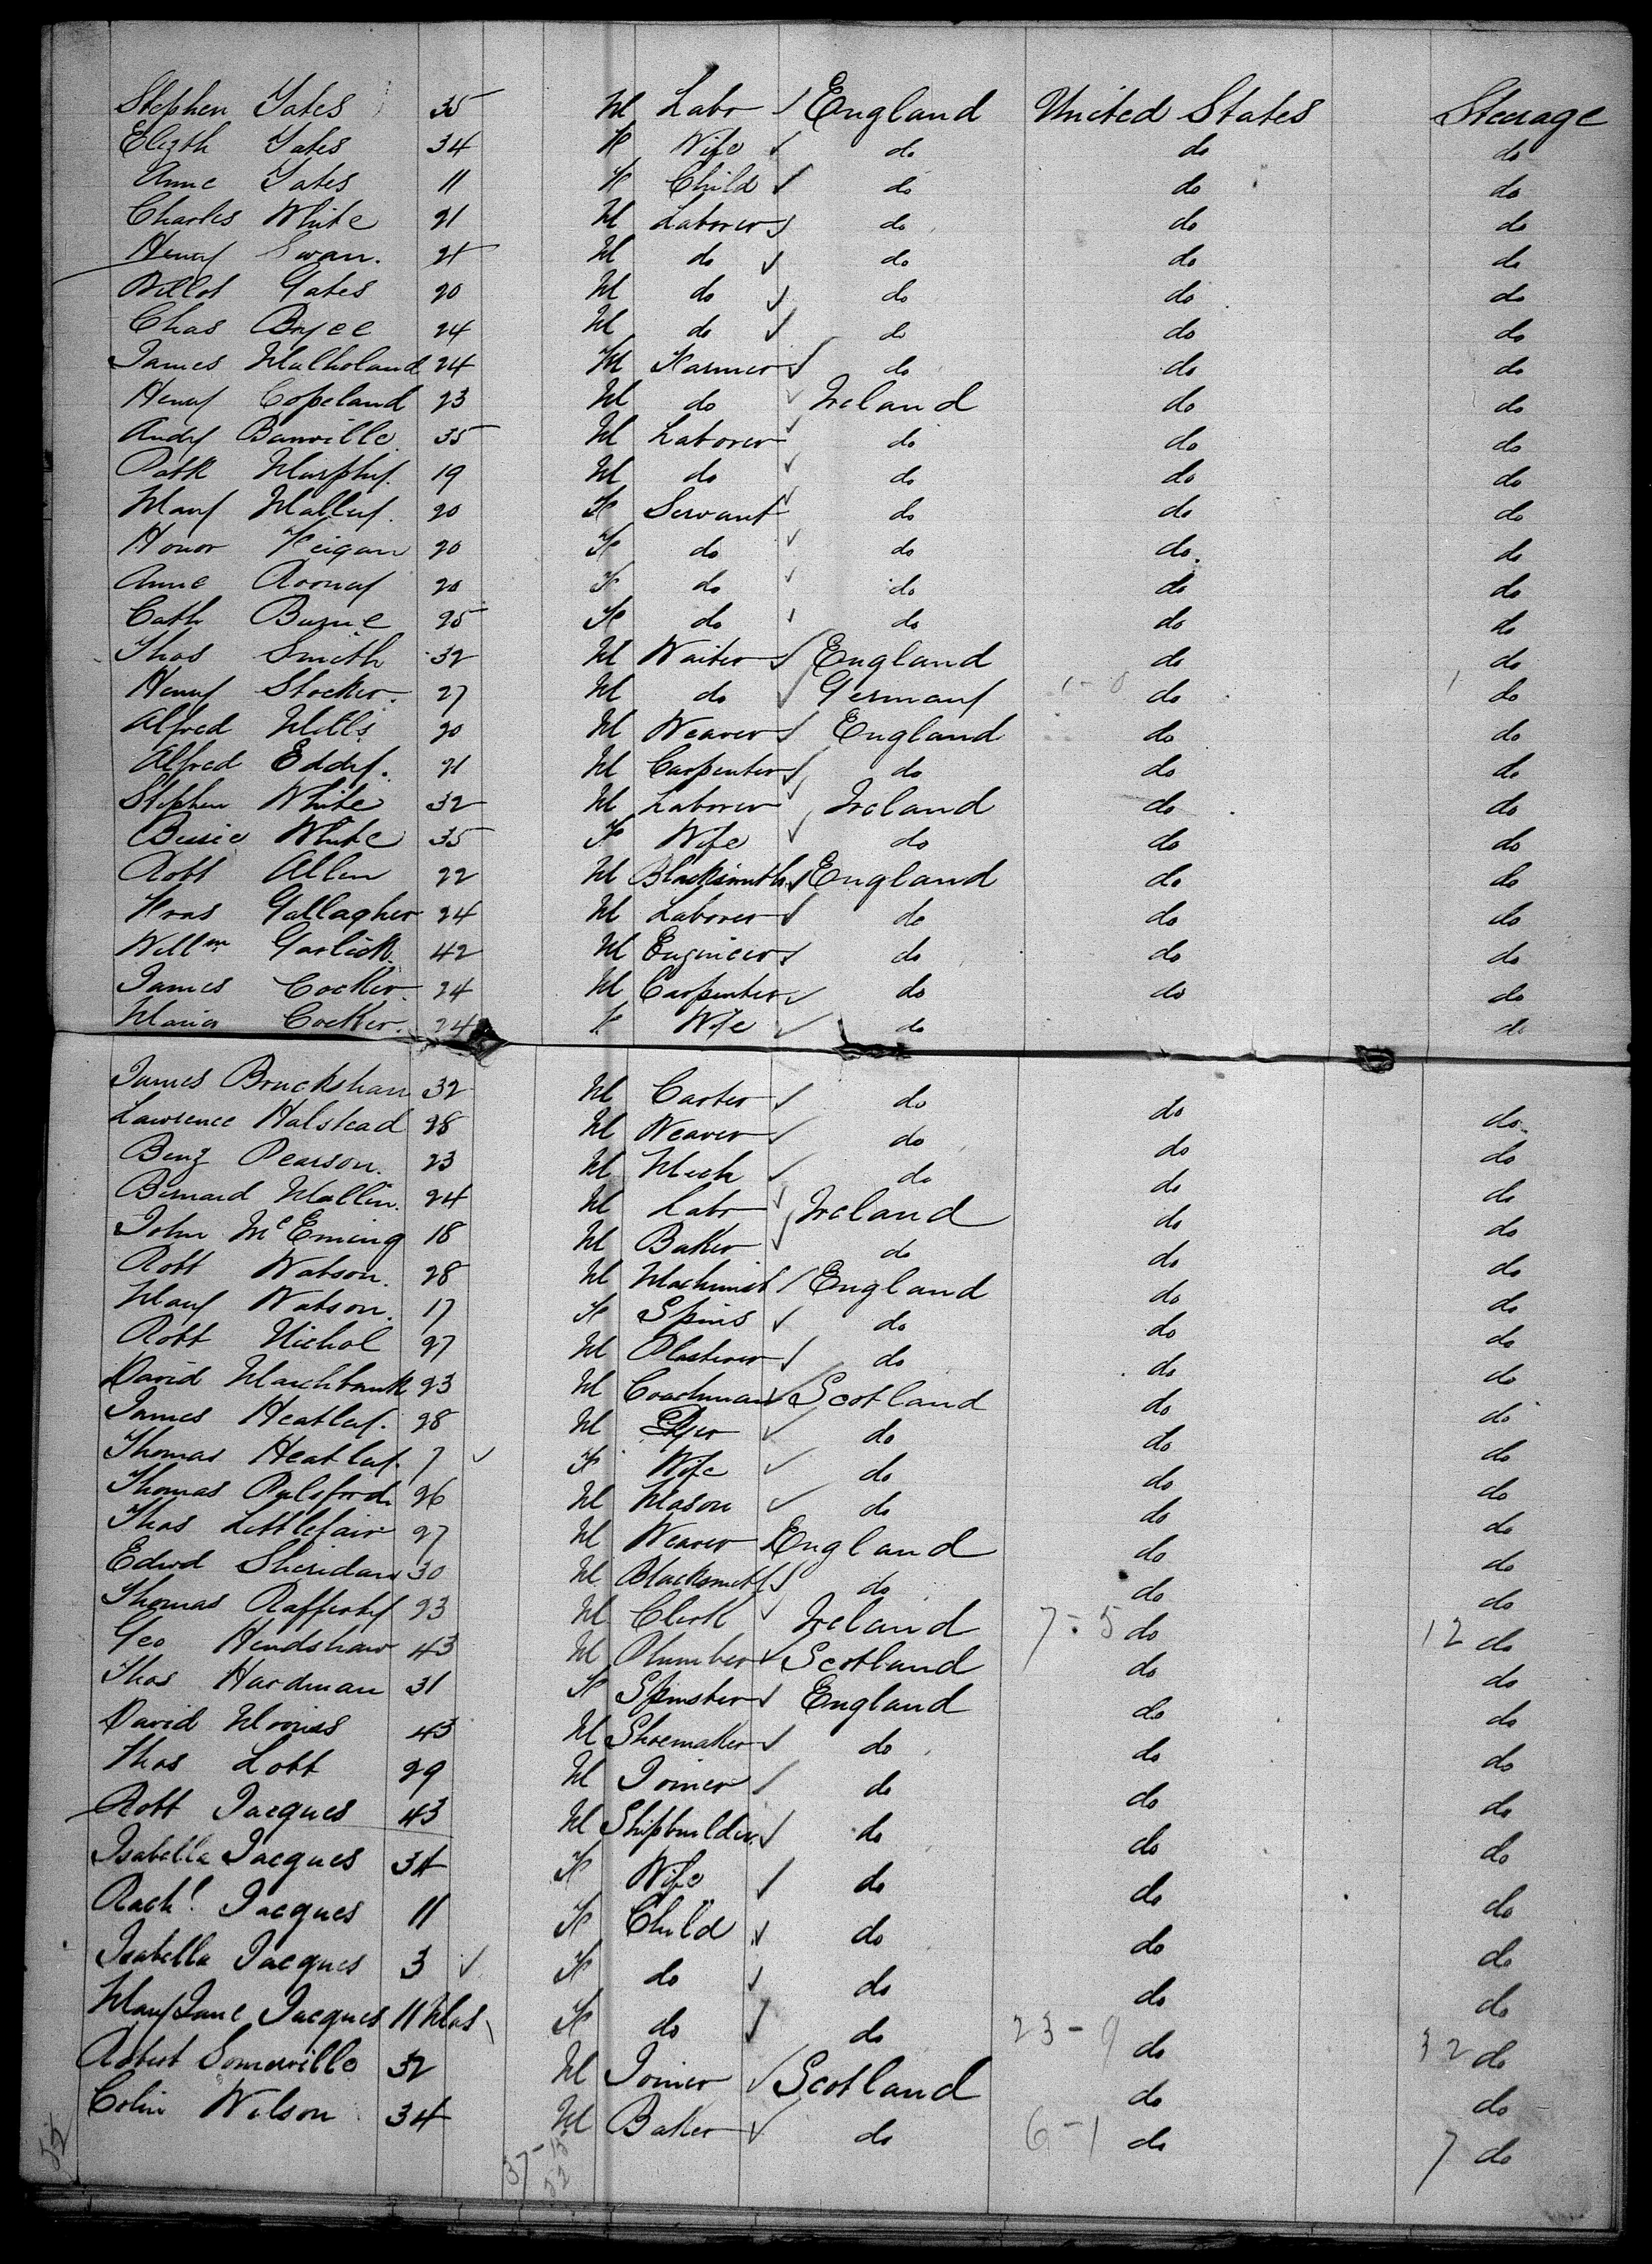 Stephen Yates 35 M Labr England United States Steerage
Elizth Yates 34 F Wife do do do
Anne Yates 11 F Child do do do
Charles White 21 M Laborer do do do
Henry Swan. 21 M do do do do
Gates 20 M do do do do
Chas Bryce 24 M do do do do
James Mulholand 24 M Farmer do do do
Henry Copeland 23 M do Ireland do do
Andy Banville 35 M Laborer do do do
Patk Murphy. 19 M do do do do
Mary Mallery. 20 F Servant do do do
Honor Feigan 20 F do do do do
Anne Rooney 20 F do do do do
Cath Burne 25 F do do do do
Thos Smith 32 M Waiter England do do
Henry Stocker. 27 M do Germany do do
Alfred Mills 20 M Weaver England do do
Alfred Eddy. 21 M Carpenter do do do
Stephen White 32 M Laborer Ireland do do
Bessie White 35 F Wife do do do
Robt Allen 22 M Blacksmith England do do
Fras Gallagher 24 M Laborer do do do
Willm Garlick. 42 M Engineer do do do
James Cocker. 24 M Carpenter do do do
Maria Cocker. 24 F Wife do do
James Bruckshaw 32 M Carter do do do
Lawrence Halstead 28 M Weaver do do do
Benj Pearson. 23 M Mech do do do
Bernard Mallin. 24 M Labr Ireland do do
John McEming 18 M Baker do do do
Robt Watson. 28 M Machinist England do do
Mary Watson. 17 F Spins do do do
Robt Nichol 27 M Plasterer do do do
David Marchbank 23 M Coachman Scotland do do
James Heatley. 28 M Dyer do do do
Thomas Heatley. 7 F Wife do do do
Thomas Pulsford 26 M Mason do do do
Thos Littlefair 27 M Weaver England do do
Edwd Sheridan 30 M Blacksmith do do do
Thomas Rafferty 23 M Clerk Ireland 7-5 do 12 do
Geo Hendshaw 43 M Plumber Scotland do do
Thos Hardman 31 F Spinster England do do
David Morris 43 M Shoemaker do do do
Thos Lott 29 M Joiner do do do
Robt Jacques 43 M Shipbuilder do do do
Isabella Jacques 34 F Wife do do do
Rachl Jacques 11 F Child do do do
Isabella Jacques 3 F do do do do
Mary Jane Jacques 11 Mos F do do 23-9 do 32 do
Robert Somerville 32 M Joiner Scotland do do
Colin Wilson 34 M Baker do 6-1 do 7 do
52 37-15
52